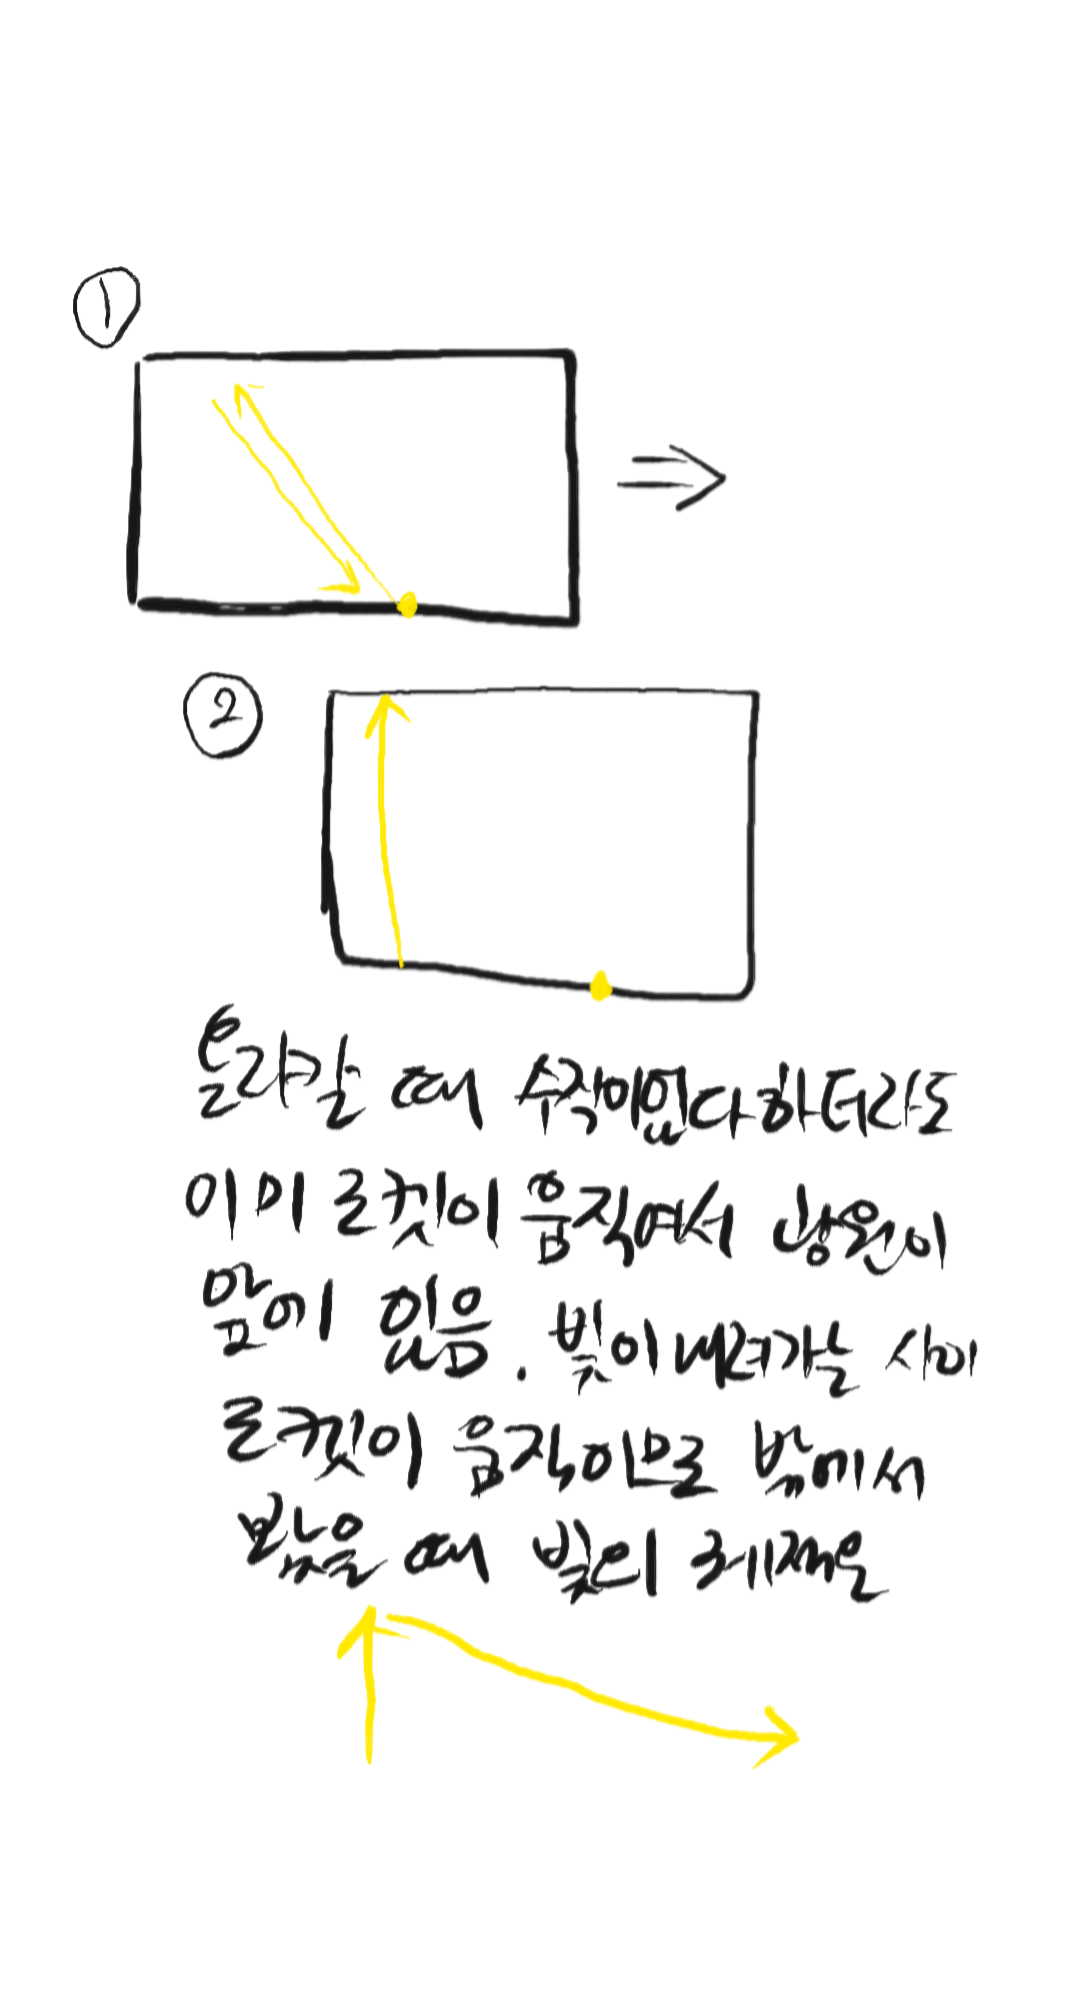 ①
②
올라갈 때 수직이었다 하더라도
이미 로켓이 움직여서 광원이
앞에 있음. 빛이 내려가는 사이
로켓이 움직이므로 밖에서
봤을 때 빛의 궤적은